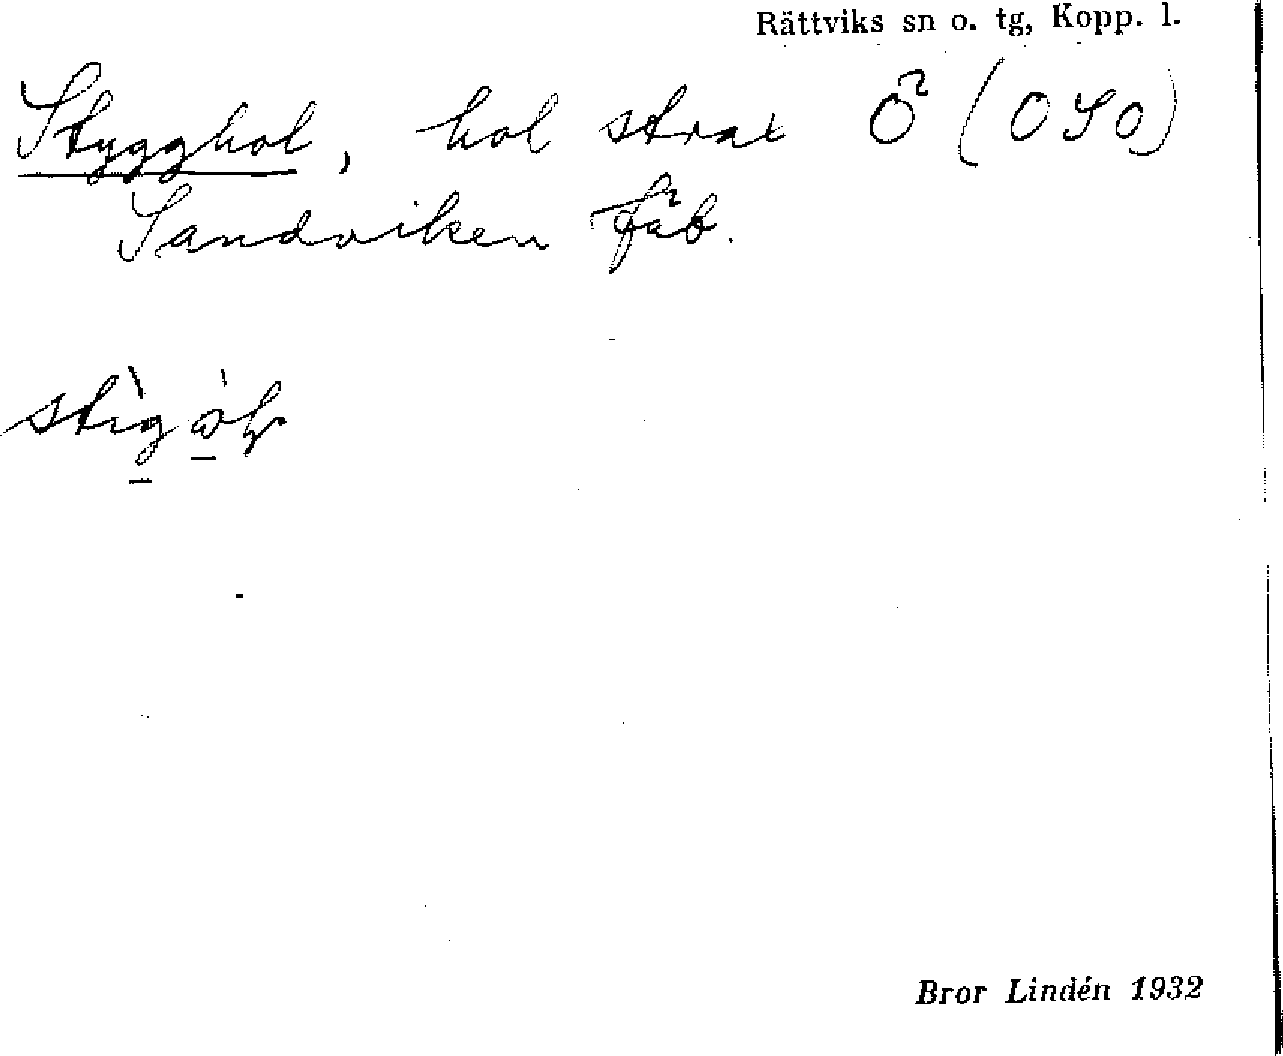 Rättviks sn o. tg, Kopp. l.
Stygghol, hol strax Ö (OSO)
Sandviken fäb.
Bror Lindén 1932